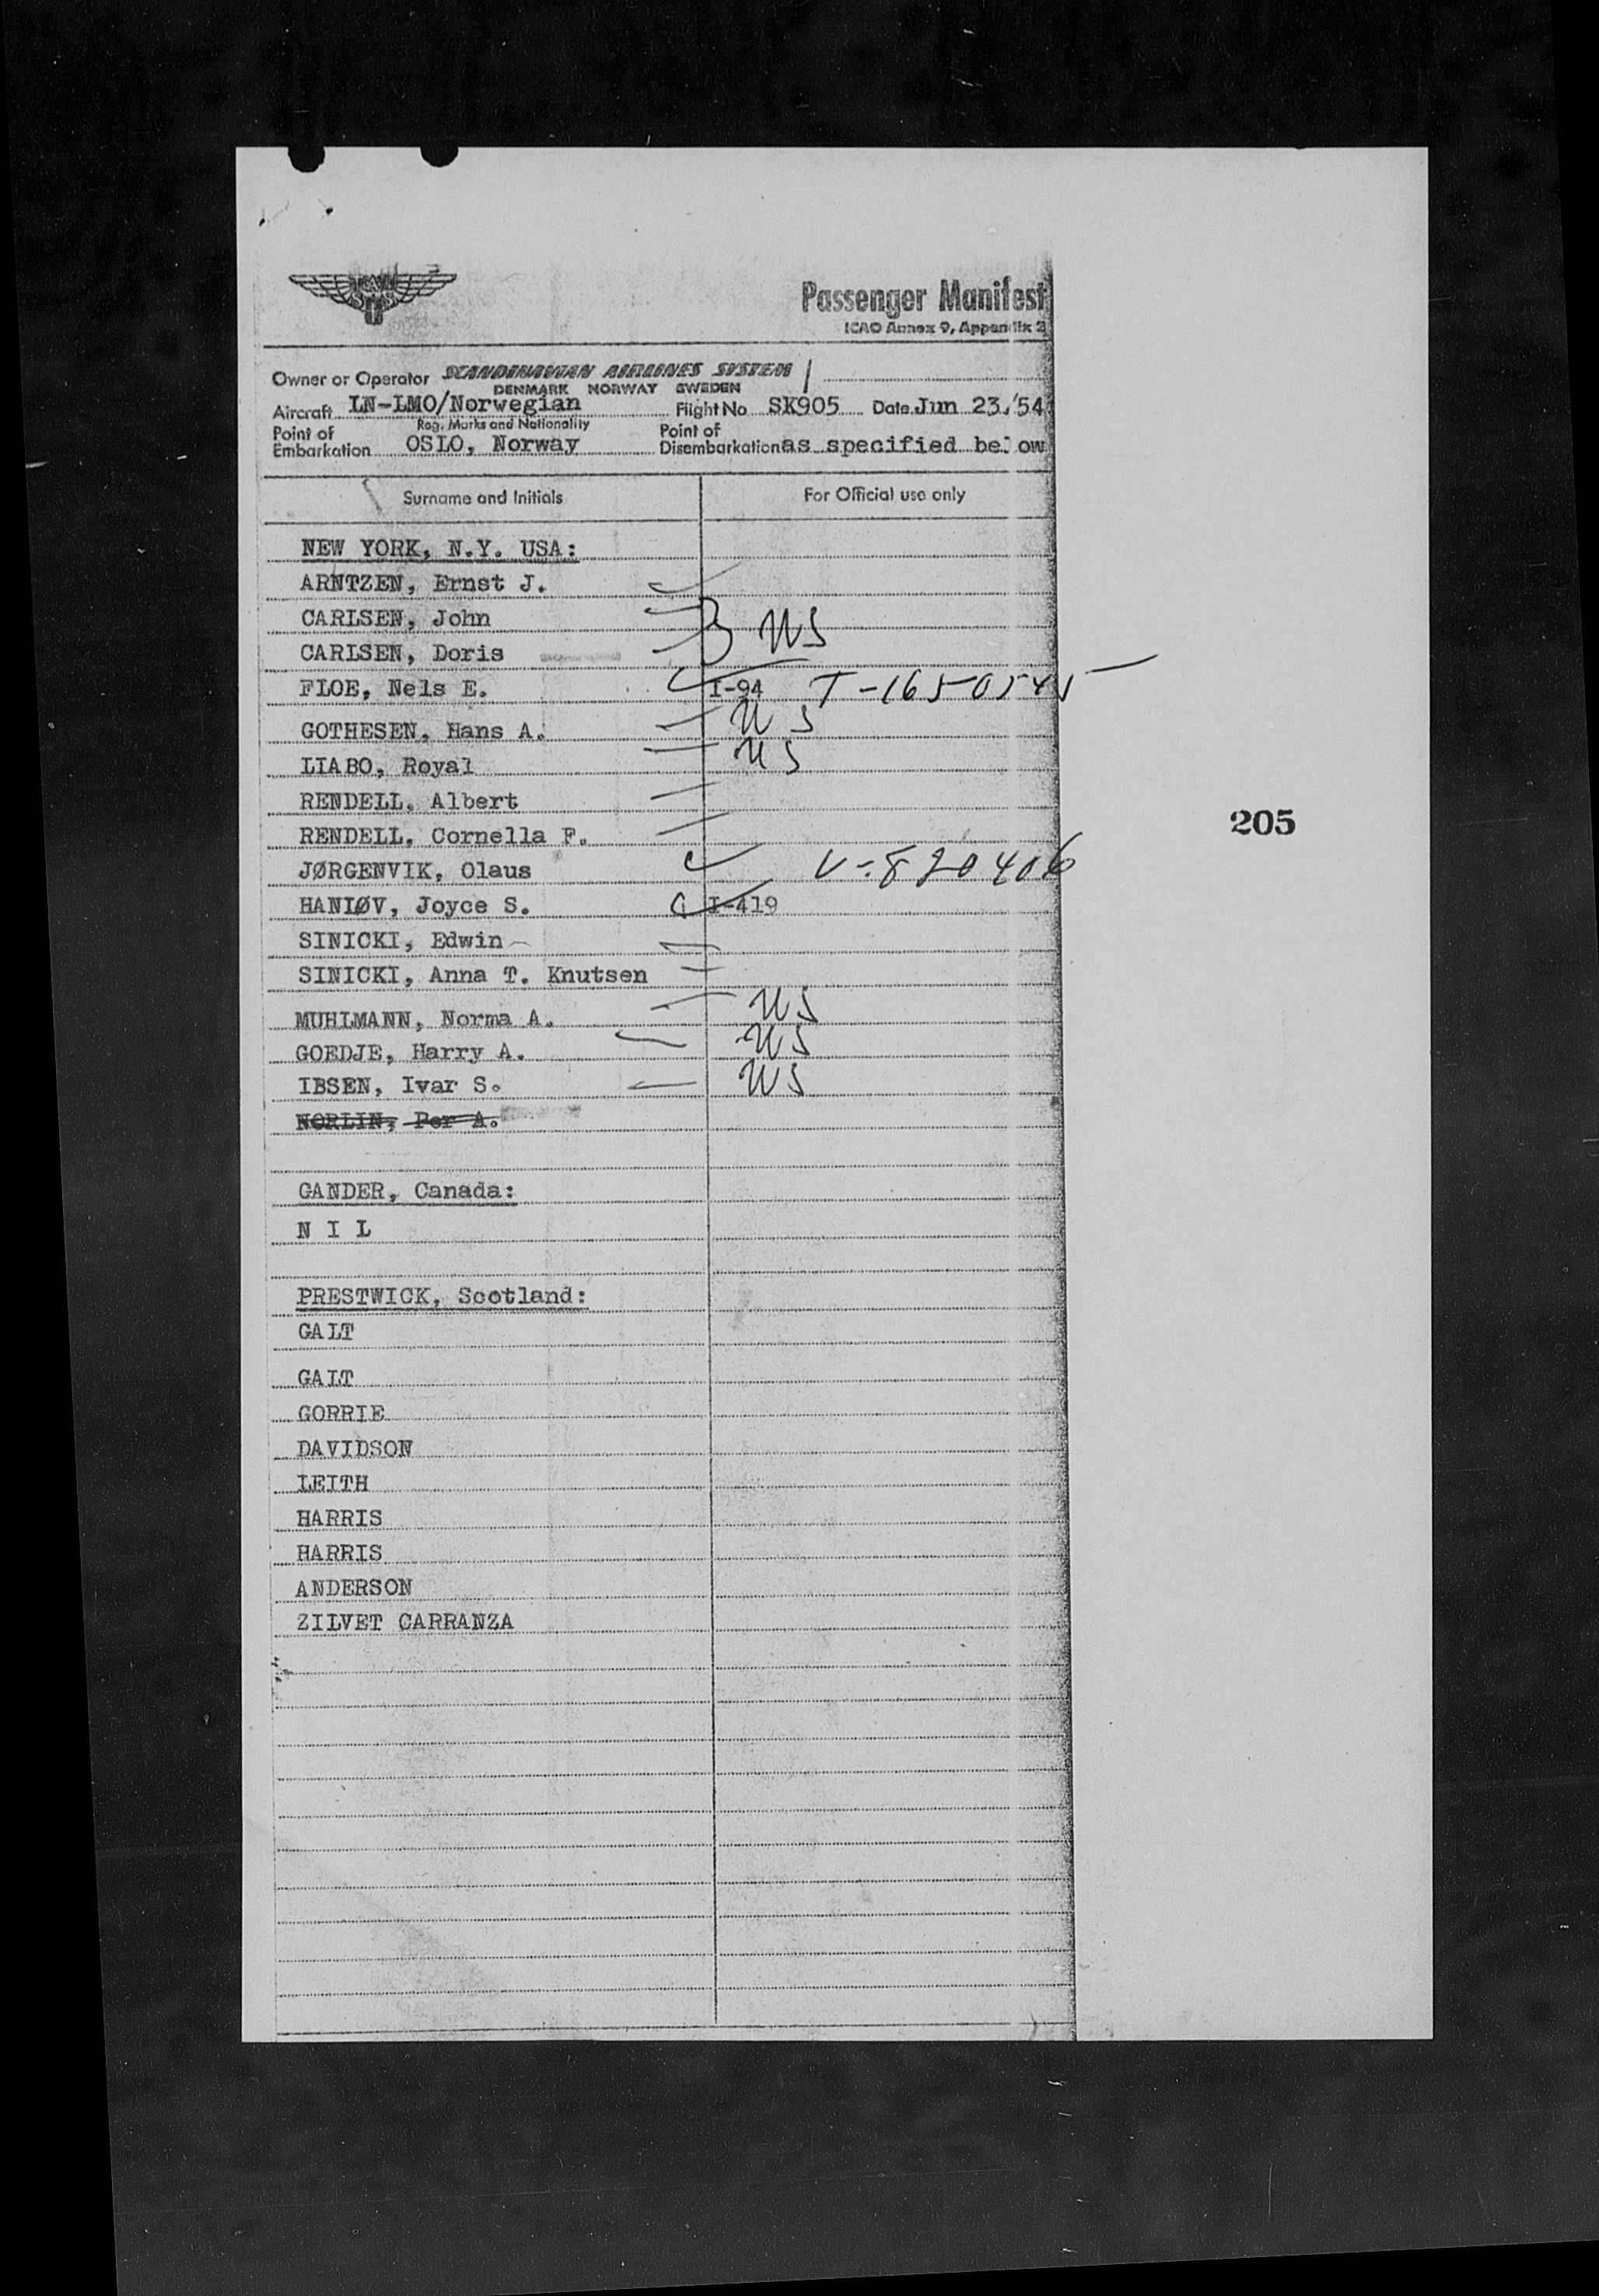 Passenger Manifest
ICAO Annex 9, Appendix 2
Owner or Operator SCANDINAVIAN AIRLINES SYSTEM
DENMARK NORWAY SWEDEN
Aircraft LN-LMO/Norwegian Flight No SK905 Date Jun 23,'54
Reg. Marks and Nationality
Point of Embarkation OSLO, Norway Point of Disembarkation as specified below
Surname and Initials For Official use only
NEW YORK, N.Y. USA:
ARNTZEN, Ernst J.
CARLSEN, John
US
CARLSEN, Doris
FLOE, Nels E. I-94
GOTHESEN, Hans A. US
LIABO, Royal US
RENDELL, Albert
RENDELL, Cornella F.
205
JØRGENVIK, Olaus V-820406
HANLØV, Joyce S. I-419
SINICKI, Edwin
SINICKI, Anna T. Knutsen
MUHLMANN, Norma A. US
GOEDJE, Harry A. US
IBSEN, Ivar S. US
NORLIN, Per A.
GANDER, Canada:
N I L
PRESTWICK, Scotland:
GALT
GALT
GORRIE
DAVIDSON
LEITH
HARRIS
HARRIS
ANDERSON
ZILVET CARRANZA